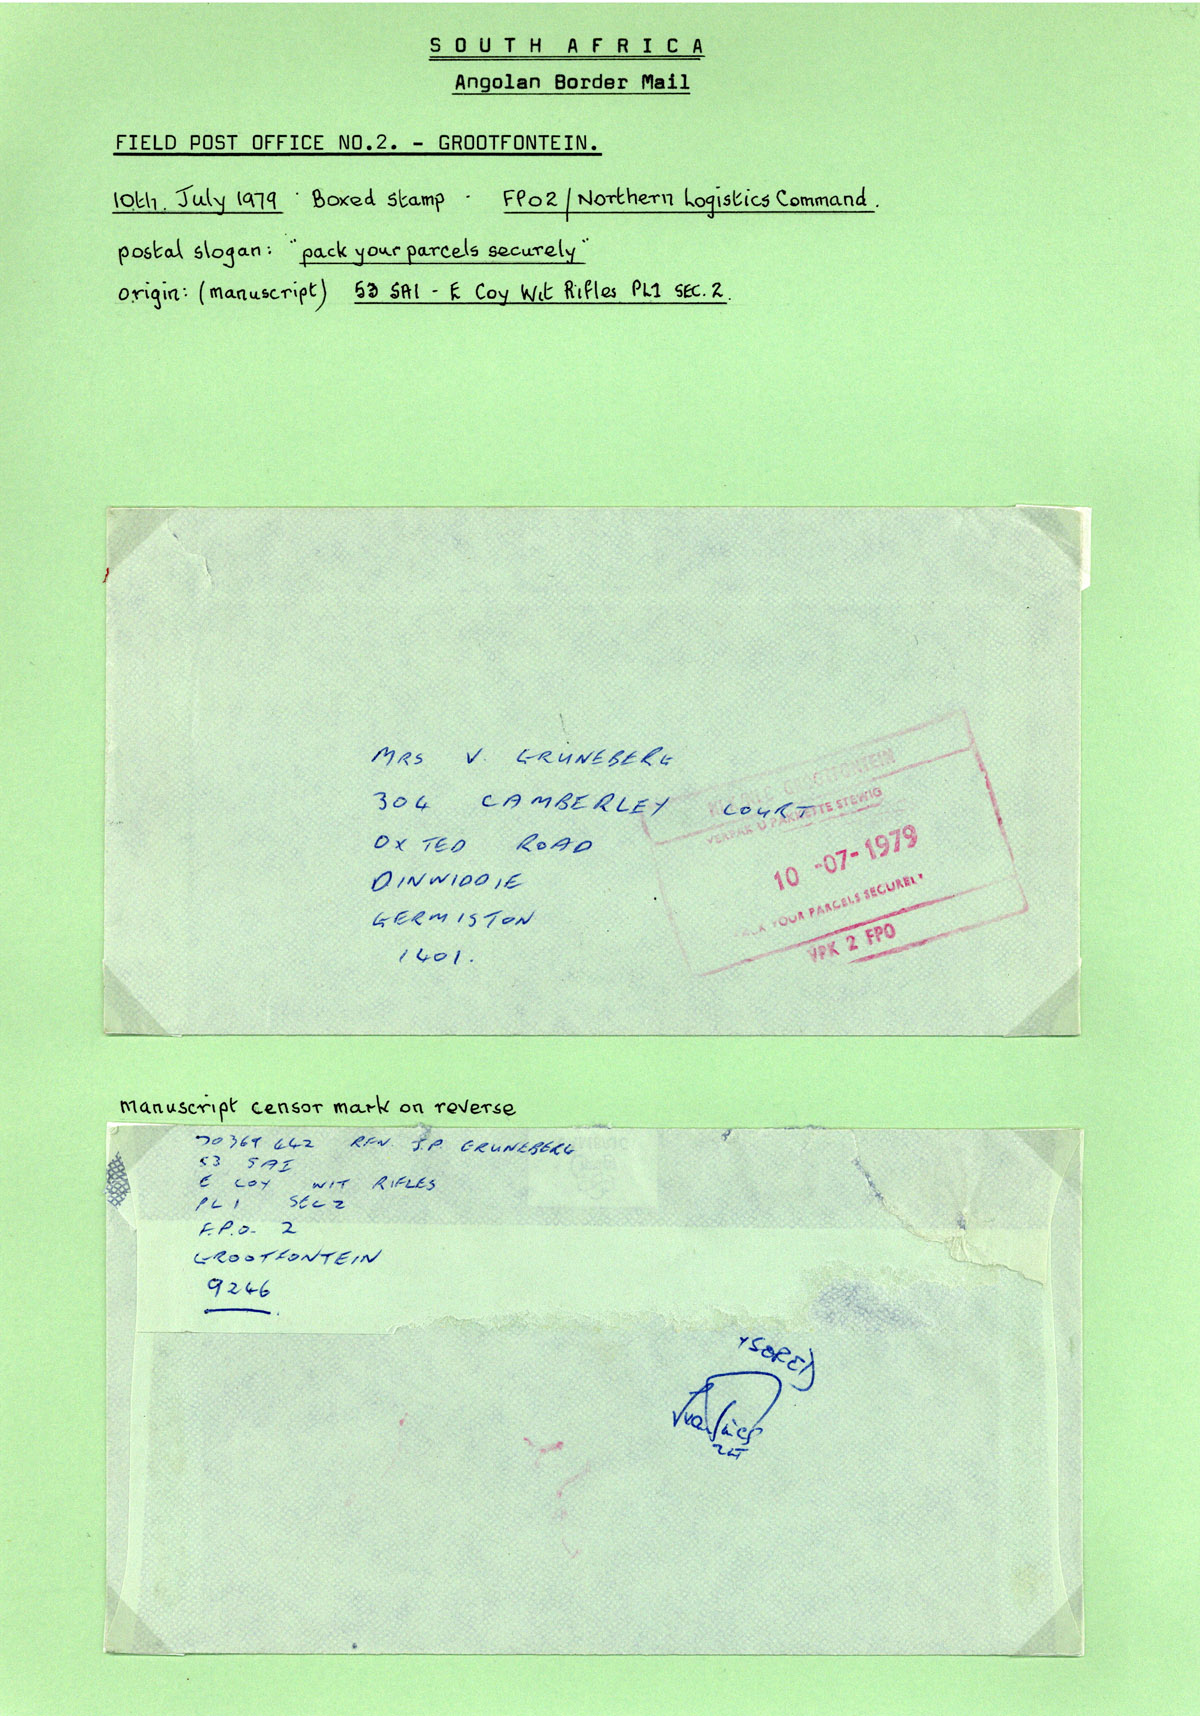 SOUTH AFRICA
Angolan Border Mail
FIELD POST OFFICE NO.2. - GROOTFONTEIN.
10th. July 1979 · Boxed stamp · FPO2/Northern Logistics Command.
postal slogan: "pack your parcels securely"
origin: (manuscript) 53 SAI - E Coy Wit Rifles PL1 SEC. 2.
MRS V. GRUNEBERG
304 CAMBERLEY COURT
OXTED ROAD
DINWIDDIE
GERMISTON
1401.
GROOTFONTEIN
VERPAK U PAKKETTE STEWIG
10 -07-1979
YOUR PARCELS SECURELY
VPK 2 FPO
manuscript censor mark on reverse
70369442 RFN. J.P. GRUNEBERG
53 SAI
E COY WIT RIFLES
PL 1 SEC 2
F.P.O. 2
GROOTFONTEIN
9246